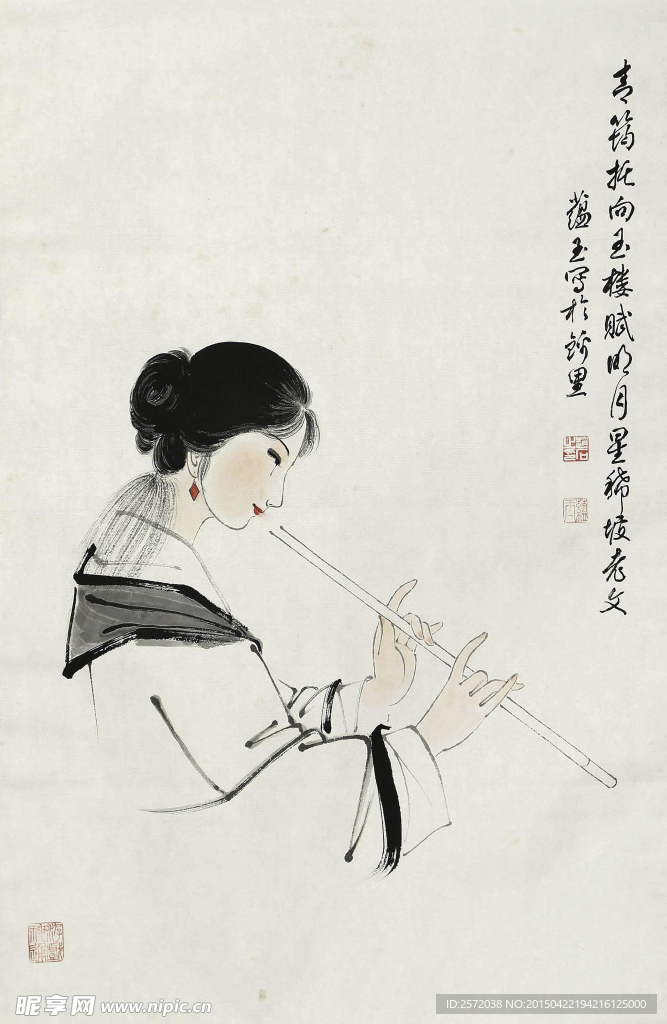 青筠抚向玉楼赋明月星稀坡老文
蕴玉写于锦里
昵享网 www.nipic.cn
ID:2572038 NO:20150422194216125000